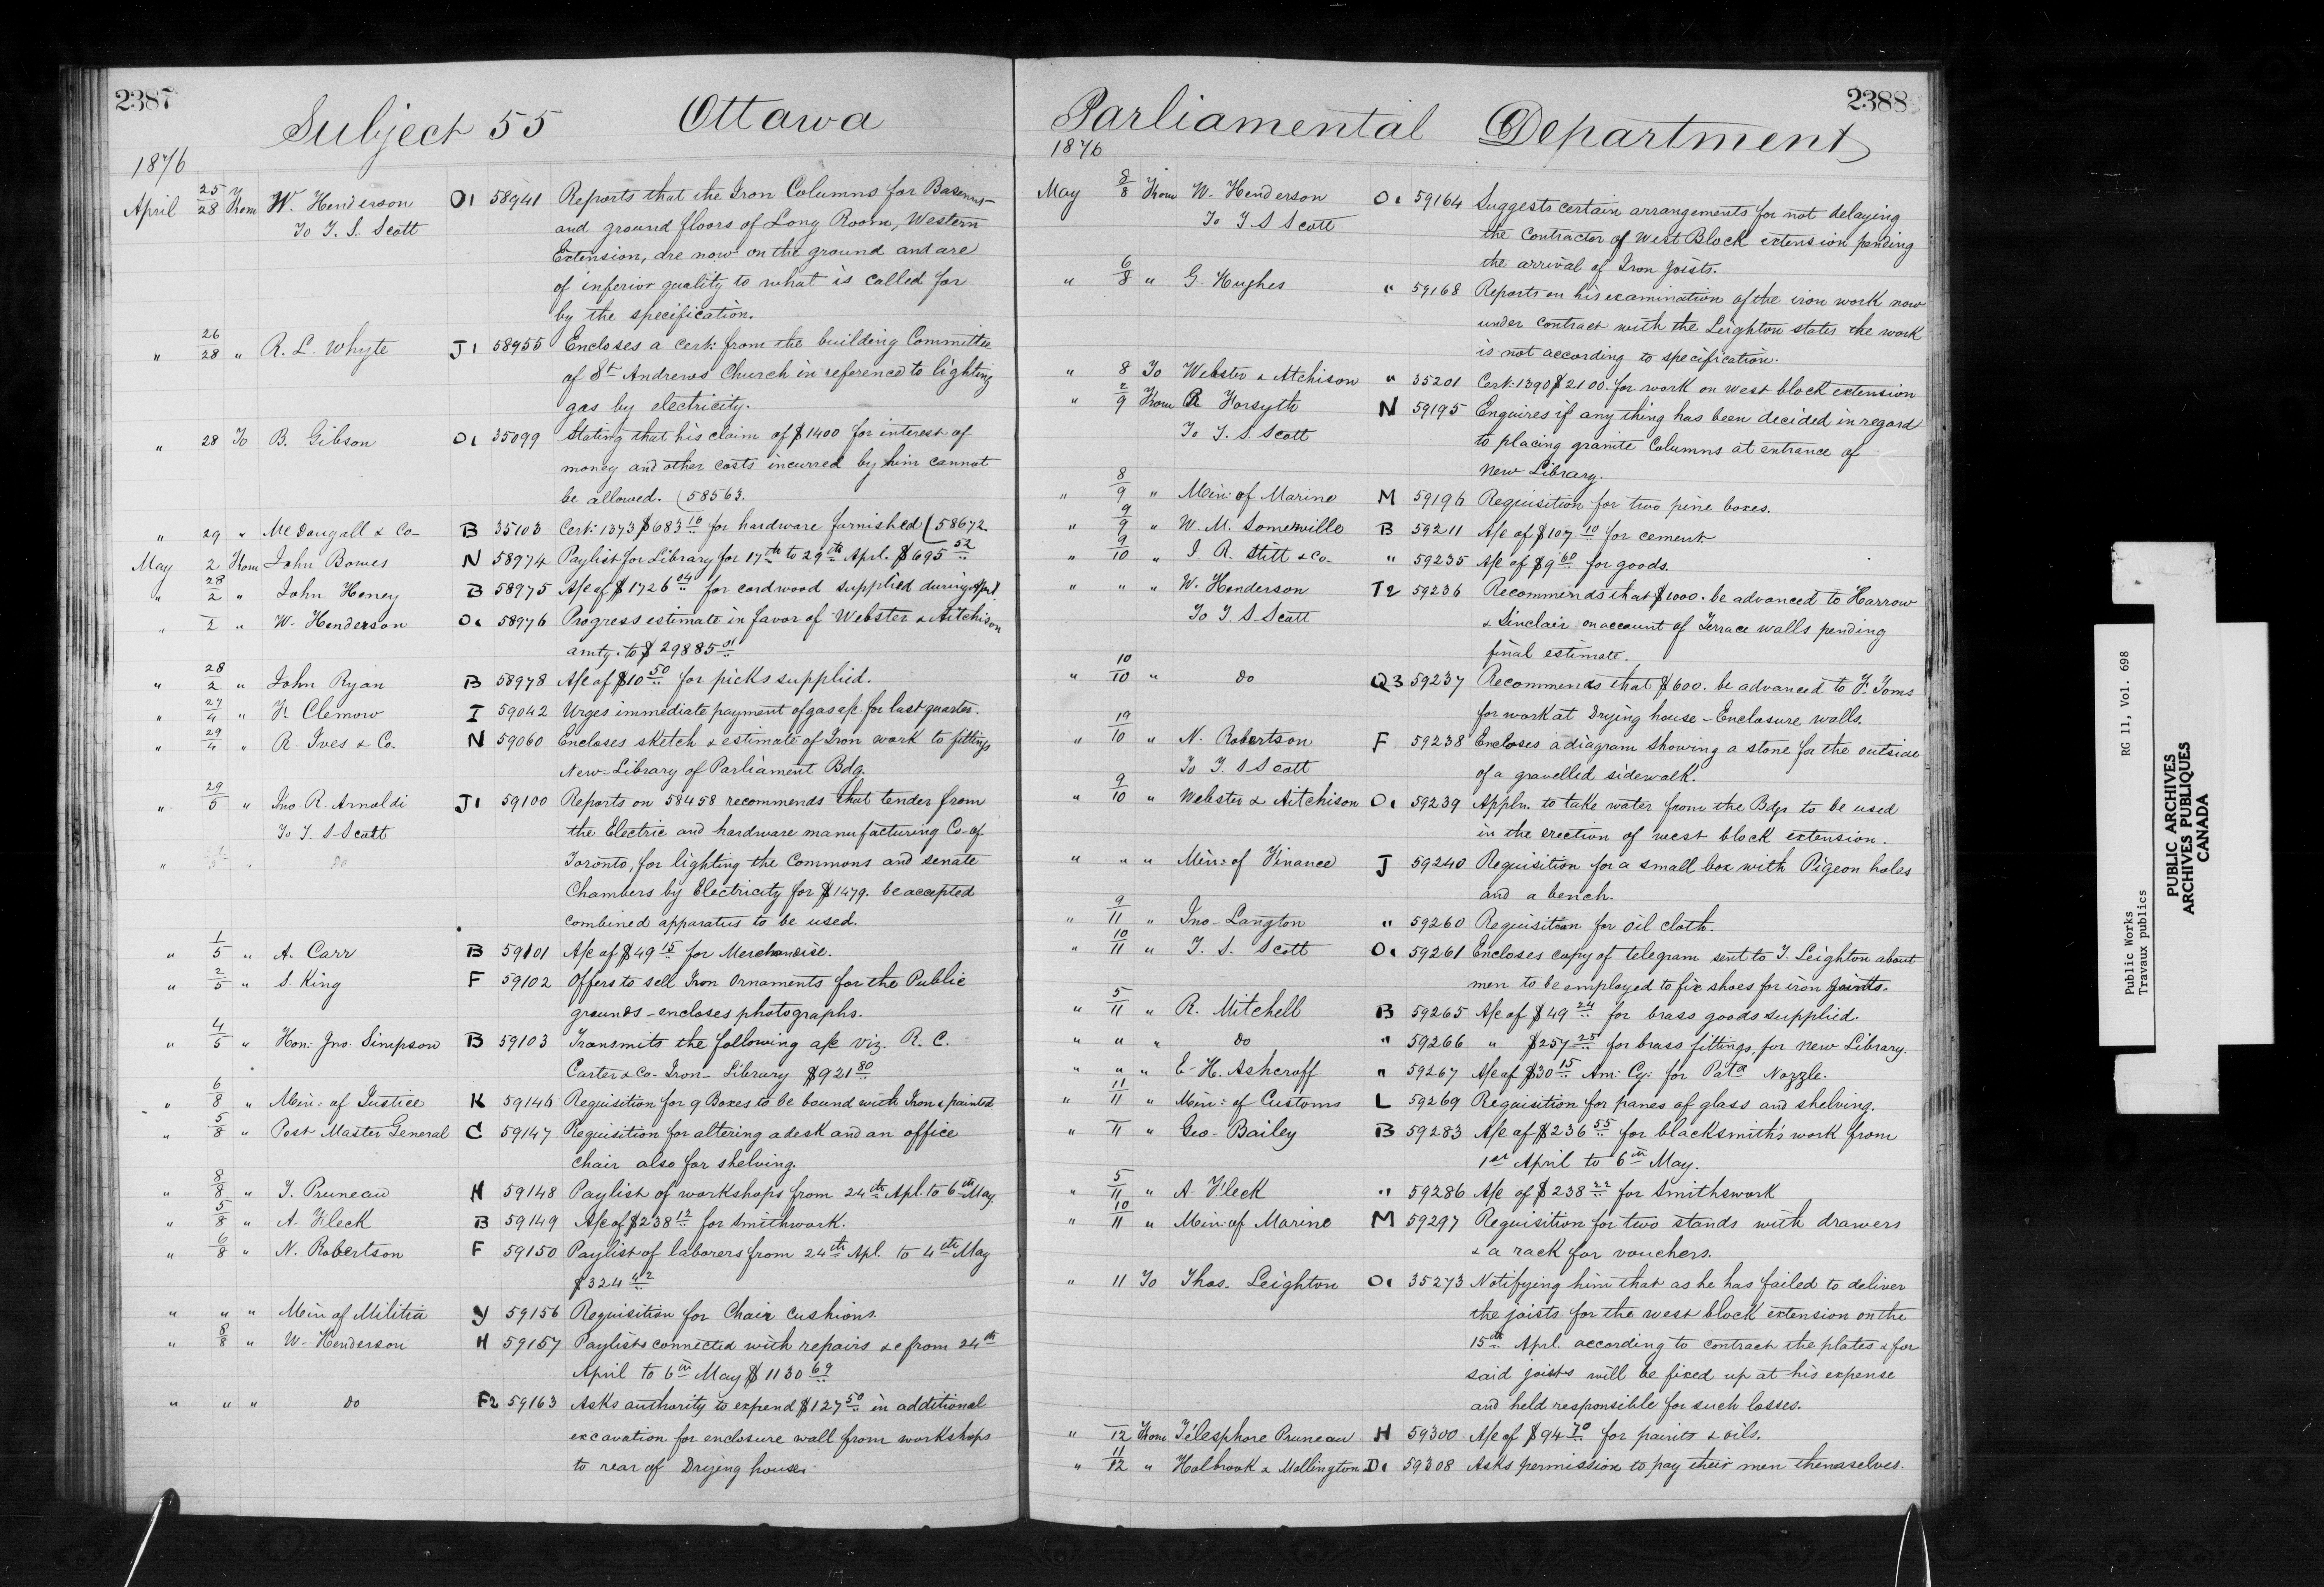 2387
Subject 55 Ottawa
1876
April 25/28 From W. Henderson O1 58941 Reports that the Iron Columns for Basemt
To T. S. Scott and ground floors of Long Room, Western
Extension, are now on the ground and are
of inferior quality to what is called for
by the specification.
" 26/28 " R. L. Whyte J1 58955 Encloses a cert: from the building Committee
of St Andrews Church in reference to lighting
gas by electricity.
" 28 To B. Gibson O1 35099 Stating that his claim of $1400 for interest of
money and other costs incurred by him cannot
be allowed. (58563.
" 29 " McDougall & Co- B 35103 Cert: 1373 $683 10 for hardware furnished (58672.
May 2 From John Bowes N 58974 Paylist for Library for 17th to 29th Aprl. $695 52
" 28/2 " John Heney B 58975 A/c of $1726 04 for cordwood supplied during Aprl.
" 2 " W. Henderson O1 58976 Progress estimate in favor of Webster & Aitchison
amtg. to $29885 01
" 28/2 " John Ryan B 58978 A/c of $10 50 for picks supplied.
" 27/4 " F. Clemow I 59042 Urges immediate payment of gas a/c for last quarter.
" 29/4 " R. Ives & Co. N 59060 Encloses sketch & estimate of Iron work to fittings
New-Library of Parliament Bdg.
" 29/5 " Jno. R. Arnoldi J1 59100 Reports on 58458 recommends that tender from
To T. S Scott the Electric and hardware manufacturing Co- of
" " do Toronto, for lighting the Commons and Senate
Chambers by Electricity for $1479. be accepted
combined apparatus to be used.
" 1/5 " A. Carr B 59101 A/c of $49 15 for Merchandise.
" 2/5 " S. King F 59102 Offers to sell Iron Ornaments for the Public
grounds - encloses photographs.
" 4/5 " Hon: Jno. Simpson B 59103 Transmits the following a/c viz. R. C.
Carter & Co- Iron- Library $921 80
" 6/8 " Min: of Justice K 59146 Requisition for 9 Boxes to be bound with Iron & painted
" 5/8 " Post Master General C 59147 Requisition for altering a desk and an office
chair also for shelving.
" 8/8 " T. Pruneau H 59148 Paylist of workshops from 24th Apl. to 6th May
" 5/8 " A. Fleck B 59149 A/c of $238 12 for Smithwork.
" 6/8 " N. Robertson F 59150 Paylist of laborers from 24th Apl. to 4th May
$324 42
" " " Min of Militia Y 59156 Requisition for Chair Cushions.
" 8/8 " W. Henderson H 59157 Paylists connected with repairs &c from 24th
April to 6th May $1130 69
" " " do F2 59163 Asks authority to expend $127 50 in additional
excavation for enclosure wall from workshops
to rear of Drying house.
2388
Parliamental Department
1876
May 8/8 From W. Henderson O1 59164 Suggests certain arrangements for not delaying
To T S Scott the Contractor of West Block extension pending
the arrival of Iron joists.
" 6/8 " G. Hughes " 59168 Reports on his examination of the iron work now
under contract with the Leighton states the work
is not according to specification.
" 8 To Webster & Atchison " 35201 Cert: 1390 $2100. for work on west block extension
" 2/9 From R Forsyth N 59195 Enquires if any thing has been decided in regard
To T. S. Scott to placing granite Columns at entrance of
New Library.
" 8/9 " Min: of Marine M 59196 Requisition for two pine boxes.
" 9/9 " W. M. Somerville B 59211 A/c of $107 10 for cement
" 9/10 " J R. Stitt & Co- " 59235 A/c of $9 60 for goods.
" " " W. Henderson T2 59236 Recommends that $1000. be advanced to Harrow
To T S Scott & Sinclair on account of Terrace walls pending
final estimate.
" 10/10 " do Q3 59237 Recommends that $600. be advanced to F. Toms
for work at Drying house - Enclosure walls.
" 19/10 " N. Robertson F 59238 Encloses a diagram showing a stone for the outside
To T. S Scott of a gravelled sidewalk.
" 9/10 " Webster & Aitchison O1 59239 Appln. to take water from the Bdgs to be used
in the erection of west block extension.
" " " Min: of Finance J 59240 Requisition for a small box with Pigeon holes
and a bench.
" 9/11 " Jno- Langton " 59260 Requisition for oil cloth.
" 10/11 " T. S. Scott O1 59261 Encloses copy of telegram sent to T. Leighton about
men to be employed to fix shoes for iron joints.
" 5/11 " R. Mitchell B 59265 A/c of $49 24 for brass goods supplied.
" " " do " 59266 " $257 25 for brass fittings, for New Library.
" " " E- H. Ashcroff " 59267 A/c of $30 15 Am: Cy: for Patx Nozzle.
" 11/11 " Min: of Customs L 59269 Requisition for panes of glass and shelving.
" 11 " Geo- Bailey B 59283 A/c of $236 55 for blacksmith's work from
1st April to 6th May.
" 5/11 " A. Fleck " 59286 A/c of $238 22 for Smithswork
" 10/11 " Min. of Marine M 59297 Requisition for two stands with drawers
& a rack for vouchers.
" 11 To Thos. Leighton O1 35273 Notifying him that as he has failed to deliver
the joists for the west block extension on the
15th Aprl. according to contract the plates & for
said joists will be fixed up at his expense
and held responsible for such losses.
" 12 From Télesphore Pruneau H 59300 A/c of $94 70 for paints & oils.
" 11/12 " Holbrook & Mollington D1 59308 Asks permission to pay their men themselves.
Public Works RG 11, Vol. 698
Travaux publics
PUBLIC ARCHIVES
ARCHIVES PUBLIQUES
CANADA